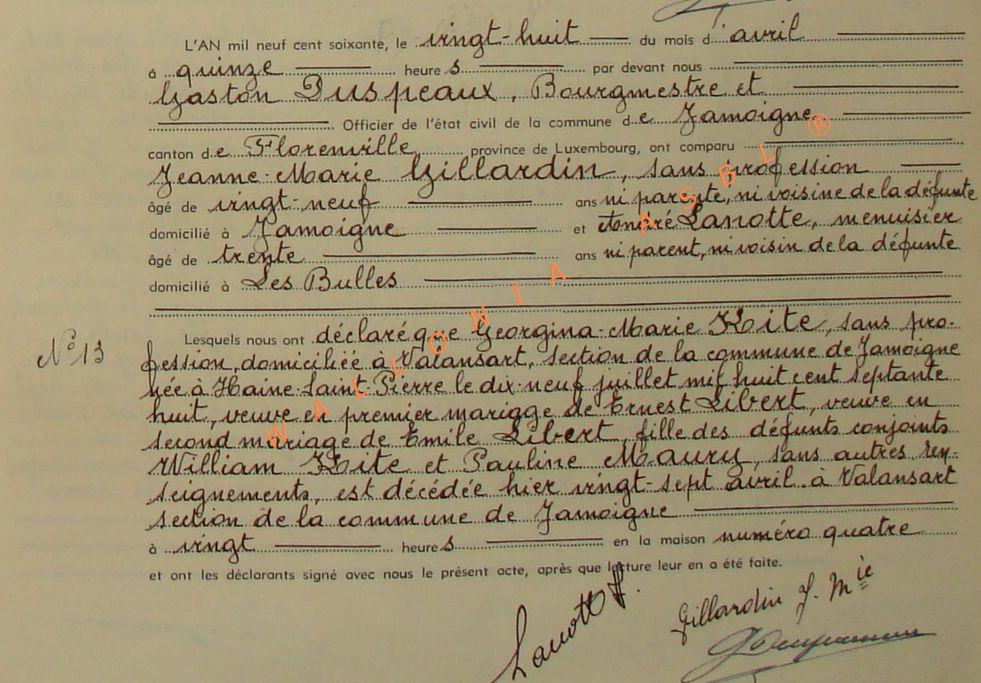 L'AN mil neuf cent soixante, le vingt-huit du mois d'avril
à quinze heures par devant nous
Gaston Duspeaux, Bourgmestre et
Officier de l'état civil de la commune de Jamoigne
canton de Florenville province de Luxembourg, ont comparu
Jeanne-Marie Gillardin, sans profession
âgé de vingt-neuf ans ni parente, ni voisine de la défunte
domicilié à Jamoigne et André Lanotte, menuisier
âgé de trente ans ni parent, ni voisin de la défunte
domicilié à Les Bulles
Lesquels nous ont déclaré que Georgina-Marie Kite, sans pro-
N° 13
fession, domiciliée à Valansart, section de la commune de Jamoigne
née à Haine-Saint-Pierre le dix-neuf juillet mil huit cent septante
huit, veuve en premier mariage de Ernest Libert, veuve en
second mariage de Emile Libert, fille des défunts conjoints
William Kite et Pauline Maury, sans autres ren-
seignements, est décédée hier vingt-sept avril à Valansart
section de la commune de Jamoigne
à vingt heures en la maison numéro quatre
et ont les déclarants signé avec nous le présent acte, après que lecture leur en a été faite.
Lanotte A.
Gillardin J. Mie
WALHONIA ASBL ®